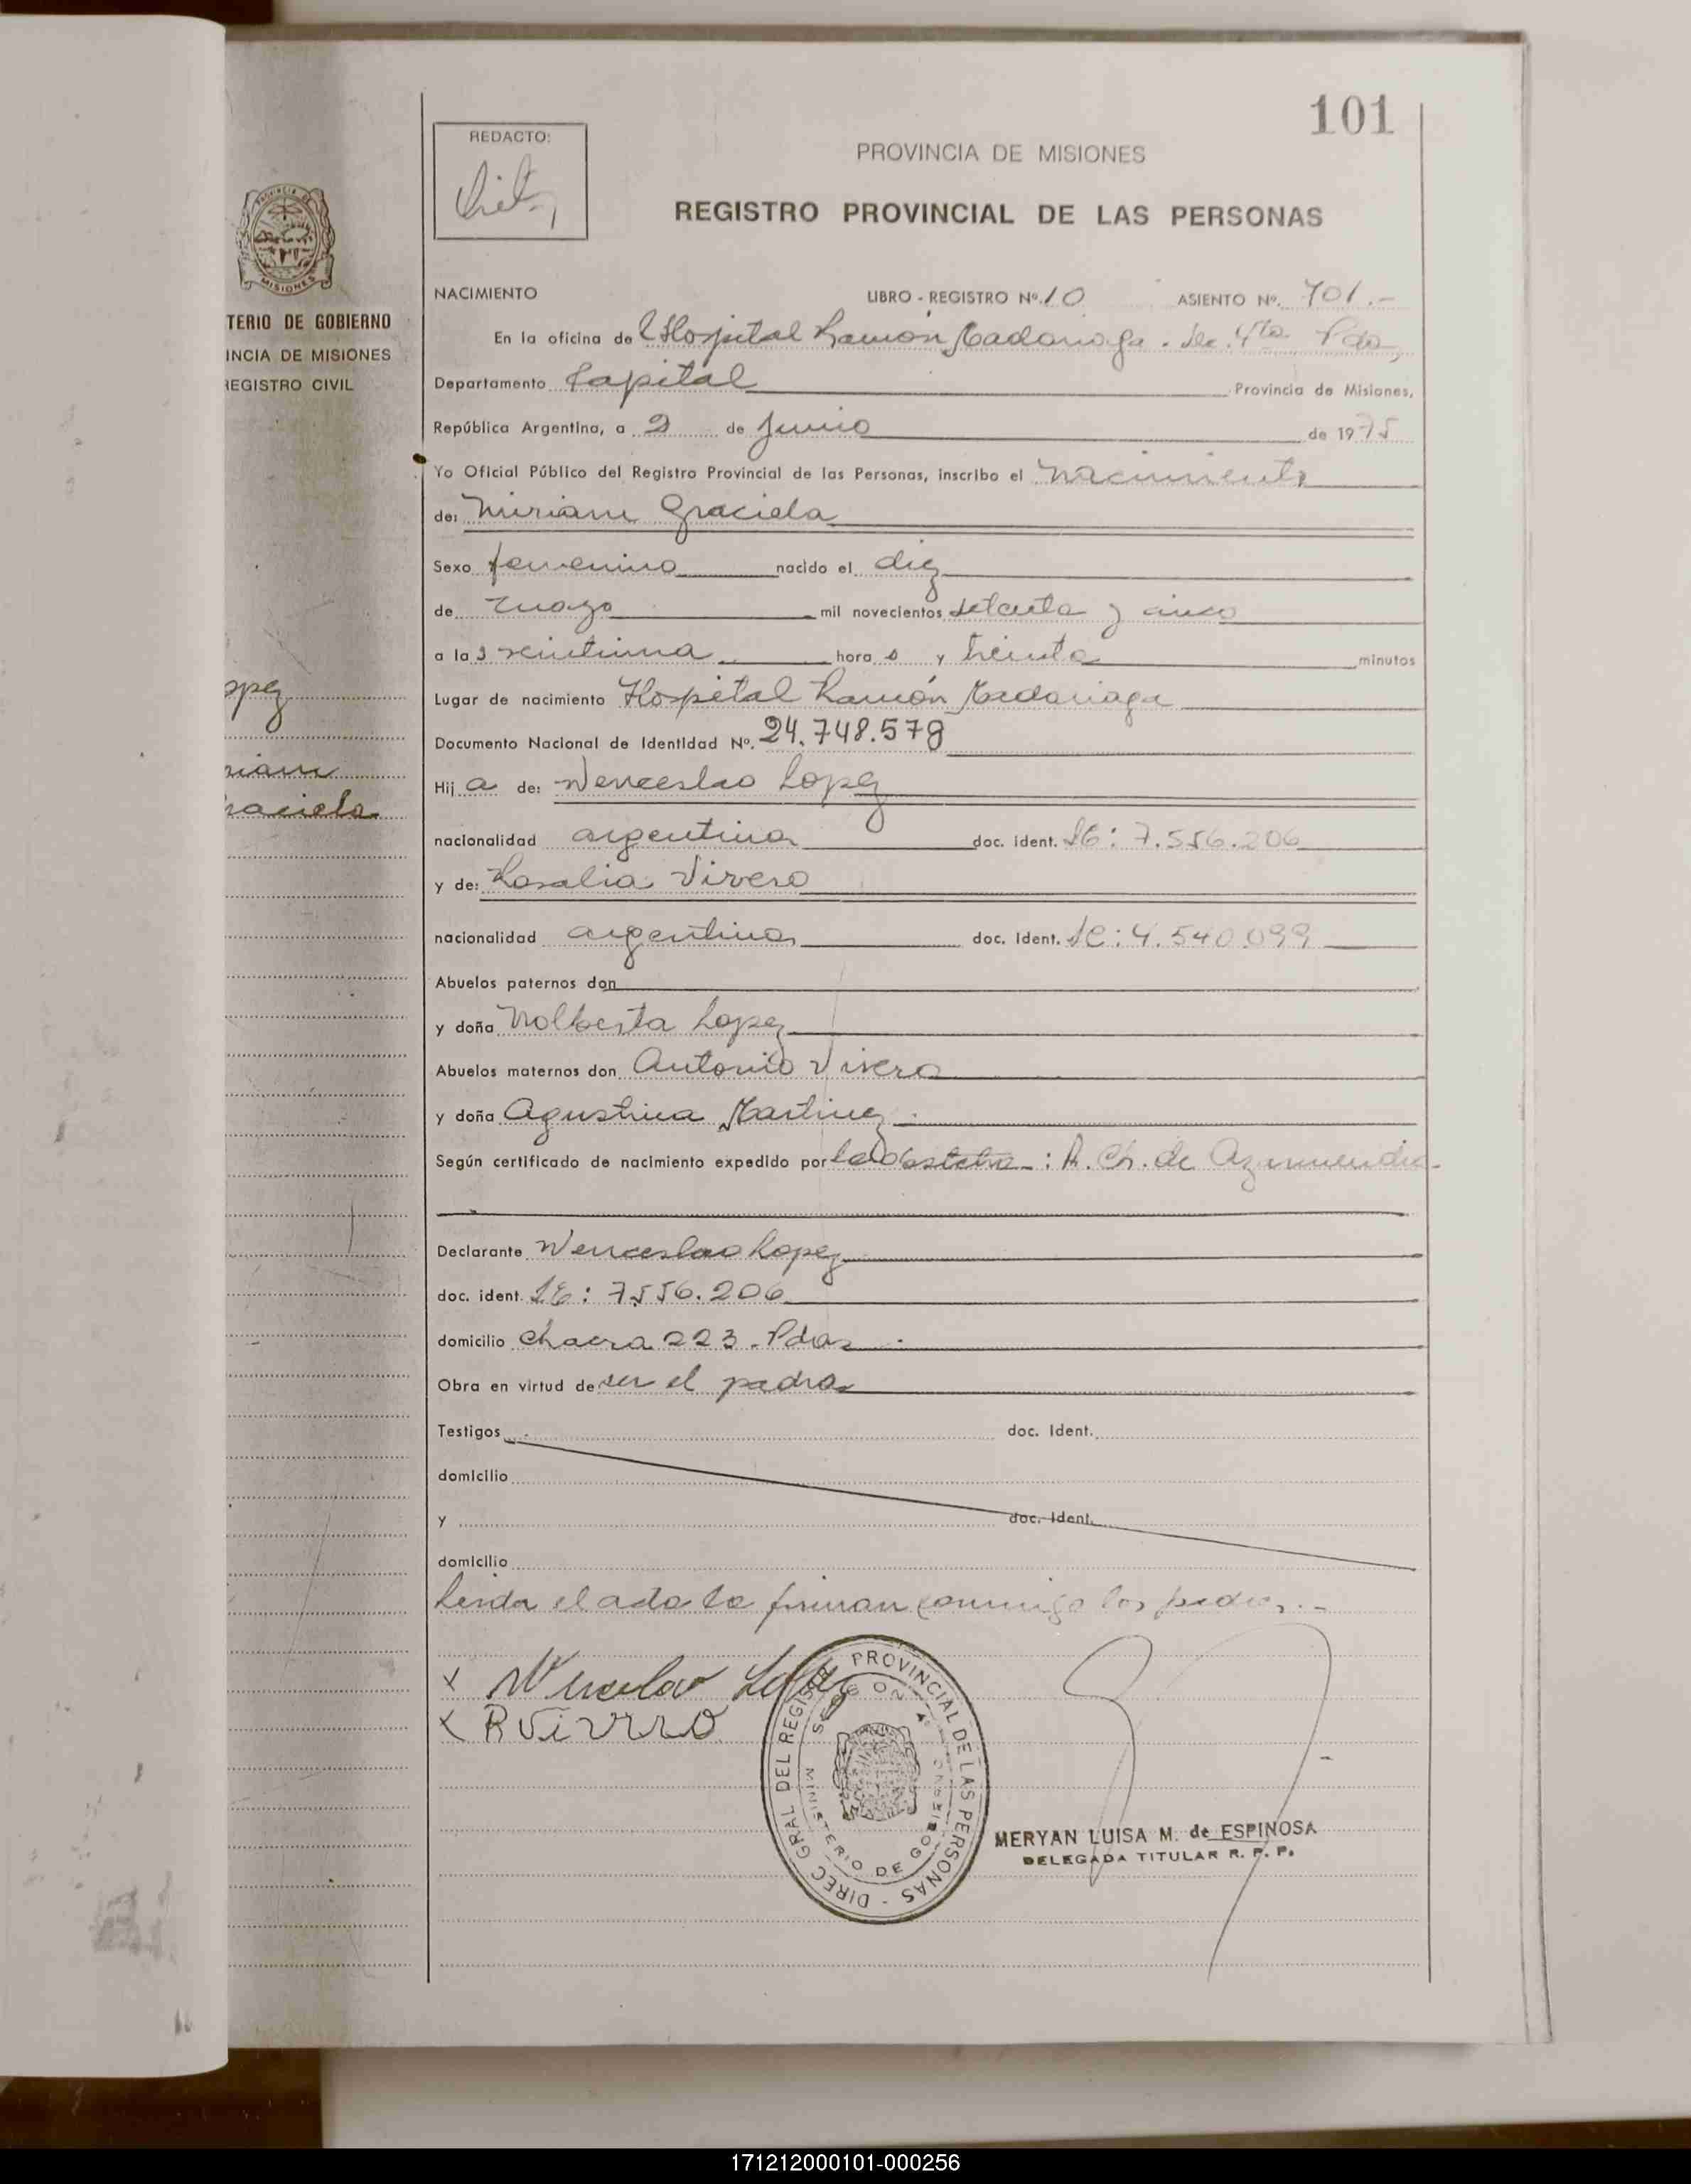 101
REDACTO:
PROVINCIA DE MISIONES
REGISTRO PROVINCIAL DE LAS PERSONAS
MISIONES
TERIO DE GOBIERNO
INCIA DE MISIONES
REGISTRO CIVIL
opez
riam
raciela
NACIMIENTO LIBRO - REGISTRO Nº. 10 ASIENTO Nº. 701.-
En la oficina de Hospital Ramón Madariaga. Sec. 4ta Pdas,
Departamento Capital Provincia de Misiones,
República Argentina, a 2 de Junio de 1975
Yo Oficial Público del Registro Provincial de las Personas, inscribo el nacimiento
de: Miriam Graciela
Sexo femenino nacido el diez
de mayo mil novecientos setenta y cinco
a la s veintiuna hora s y treinta minutos
Lugar de nacimiento Hospital Ramón Madariaga
Documento Nacional de Identidad Nº. 24.748.578
Hij a de: Wenceslao Lopez
nacionalidad argentina doc. ident. LE: 7.556.206
y de: Rosalia Vivero
nacionalidad argentina doc. ident. LC: 4.540.099
Abuelos paternos don
y doña Nolberta Lopez
Abuelos maternos don Antonio Vivero
y doña Agustina Martinez
Según certificado de nacimiento expedido por la Obstetra : R. Ch. de Azarmendia
Declarante Wenceslao Lopez
doc. ident. LE: 7.556.206
domicilio Chacra 223. Pdas
Obra en virtud de ser el padre
Testigos doc. Ident.
domicilio
y doc. Ident.
domicilio
Leida el acta la firman conmigo los padres.-
x Wenceslao Lopez
x R Vivero
DIREC GRAL DEL REGIST PROVINCIAL DE LAS PERSONAS
MINISTERIO DE GOBIERNO
MERYAN LUISA M. de ESPINOSA
DELEGADA TITULAR R. P. P.
171212000101-000256